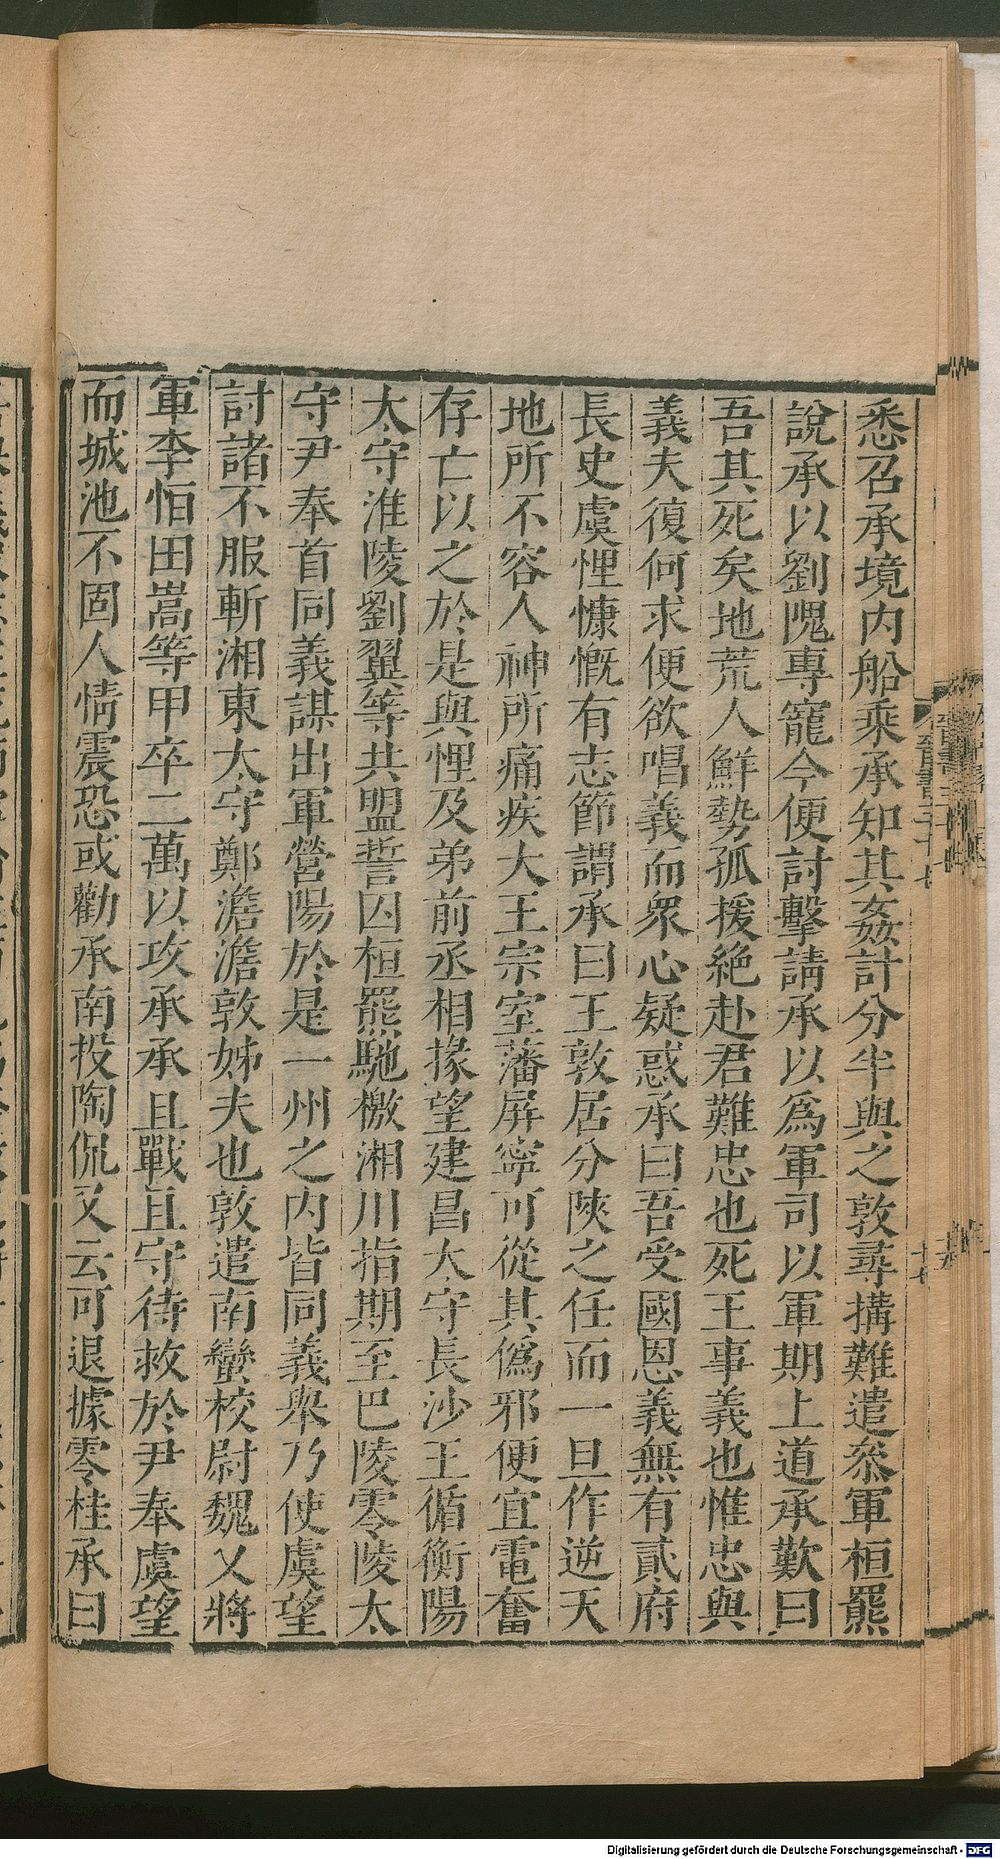 悉召承境内船乘承知其姦計分半與之敦尋搆難遣叅軍桓羆
說承以劉隗專寵今便討擊請承以爲軍司以軍期上道承歎曰
吾其死矣地荒人鮮勢孤援絶赴君難忠也死王事義也惟忠與
義夫復何求便欲唱義而衆心疑惑承曰吾受國恩義無有貳府
長史虞悝慷慨有志節謂承曰王敦居分陝之任而一旦作逆天
地所不容人神所痛疾大王宗室藩屏寧可從其僞邪便宜電奮
存亡以之於是與悝及弟前丞相掾望建昌太守長沙王循衡陽
太守淮陵劉翼等共盟誓囚桓羆馳檄湘川指期至巴陵零陵太
守尹奉首同義謀出軍營陽於是一州之内皆同義舉乃使虞望
討諸不服斬湘東太守鄭澹澹敦姊夫也敦遣南蠻校尉魏乂將
軍李恒田嵩等甲卒二萬以攻承承且戰且守待救於尹奉虞望
而城池不固人情震恐或勸承南投陶侃又云可退據零桂承曰
晉書三十七
Digitalisierung gefördert durch die Deutsche Forschungsgemeinschaft - DFG